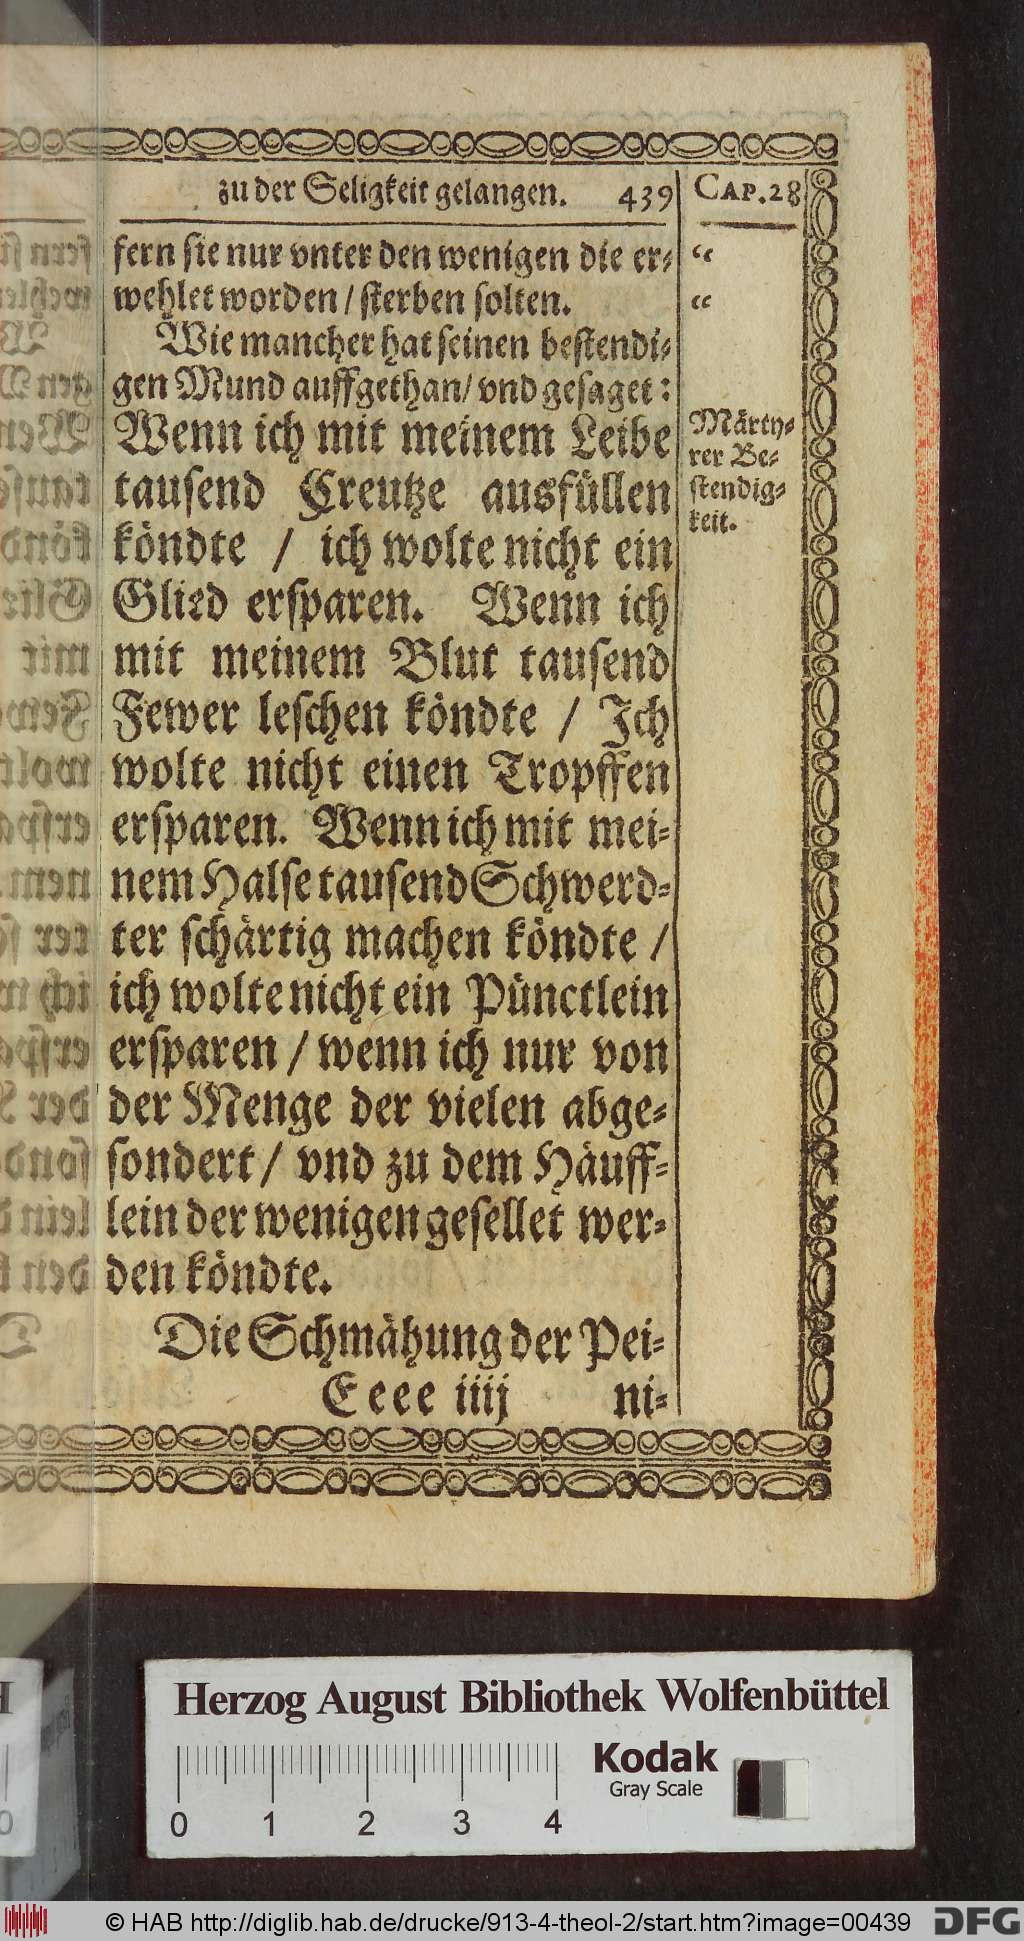 zu der Seligkeit gelangen. 439 CAP. 28
fern sie nur vnter den wenigen die er- “
wehlet worden / sterben solten. “
Wie mancher hat seinen bestendi-
gen Mund auffgethan / vnd gesaget:
Wenn ich mit meinem Leibe
tausend Creutze ausfüllen
köndte / ich wolte nicht ein
Glied ersparen. Wenn ich
mit meinem Blut tausend
Fewer leschen köndte / Ich
wolte nicht einen Tropffen
ersparen. Wenn ich mit mei-
nem Halse tausend Schwerd-
ter schärtig machen köndte /
ich wolte nicht ein Pünctlein
ersparen / wenn ich nur von
der Menge der vielen abge-
sondert / vnd zu dem Häuff-
lein der wenigen gesellet wer-
den köndte.
Die Schmähung der Pei-
Eeee iiij ni-
Märty-
rer Be-
stendig-
keit.
Herzog August Bibliothek Wolfenbüttel
Kodak
Gray Scale
0 1 2 3 4
© HAB http://diglib.hab.de/drucke/913-4-theol-2/start.htm?image=00439
DFG